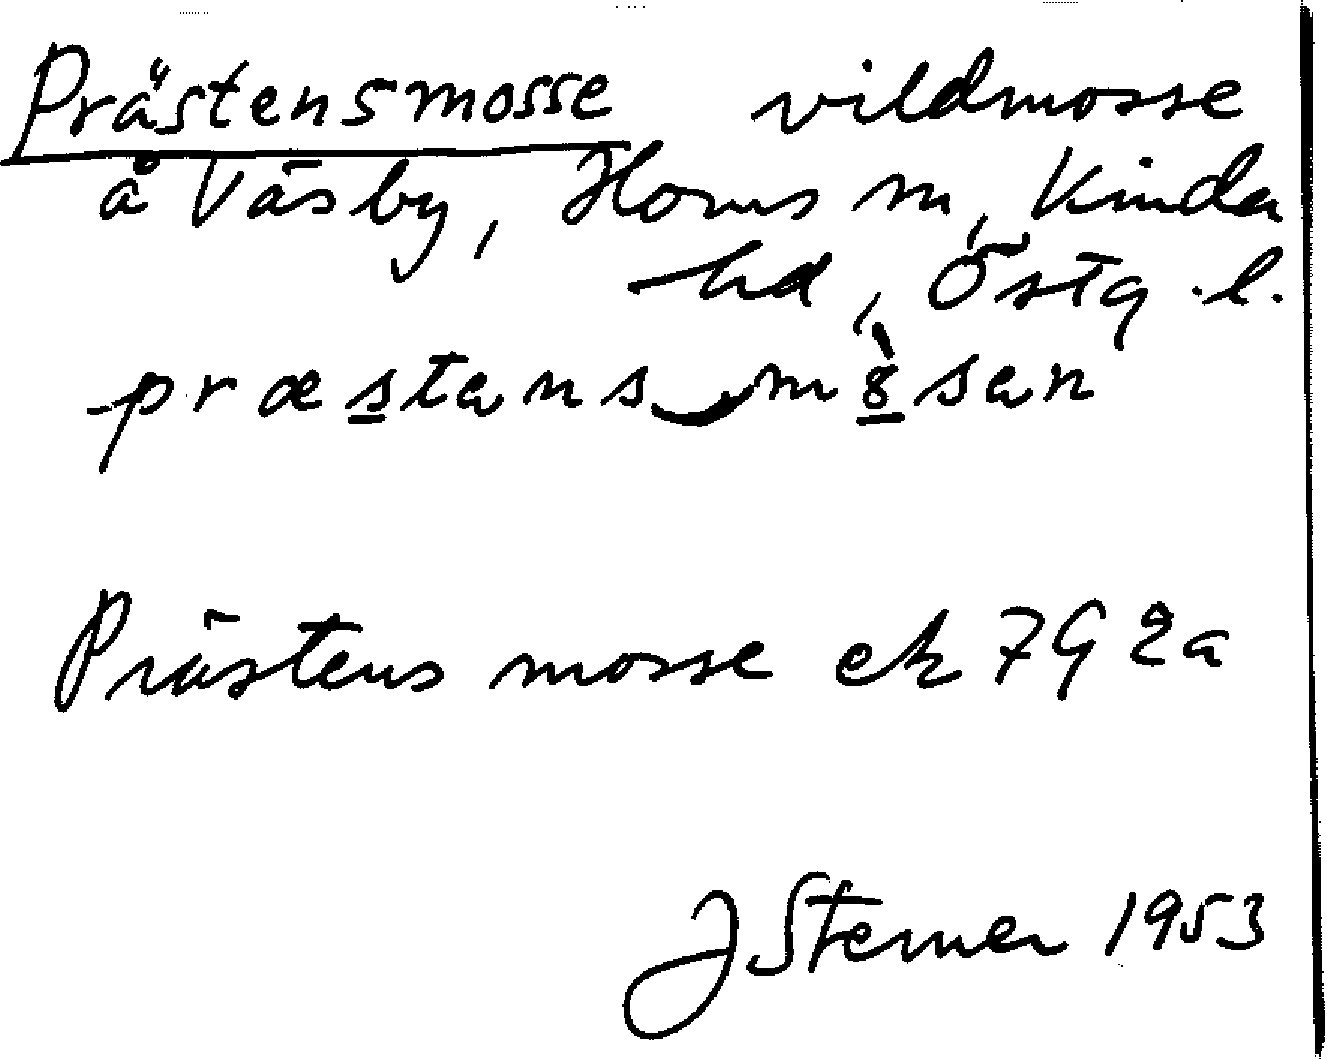 Prästensmosse vildmosse
å Väsby, Horns sn, Kinda
hd, Östg.l.
præstens‿mòsen
Prästens mosse ek 7G 2a
J Sterner 1953